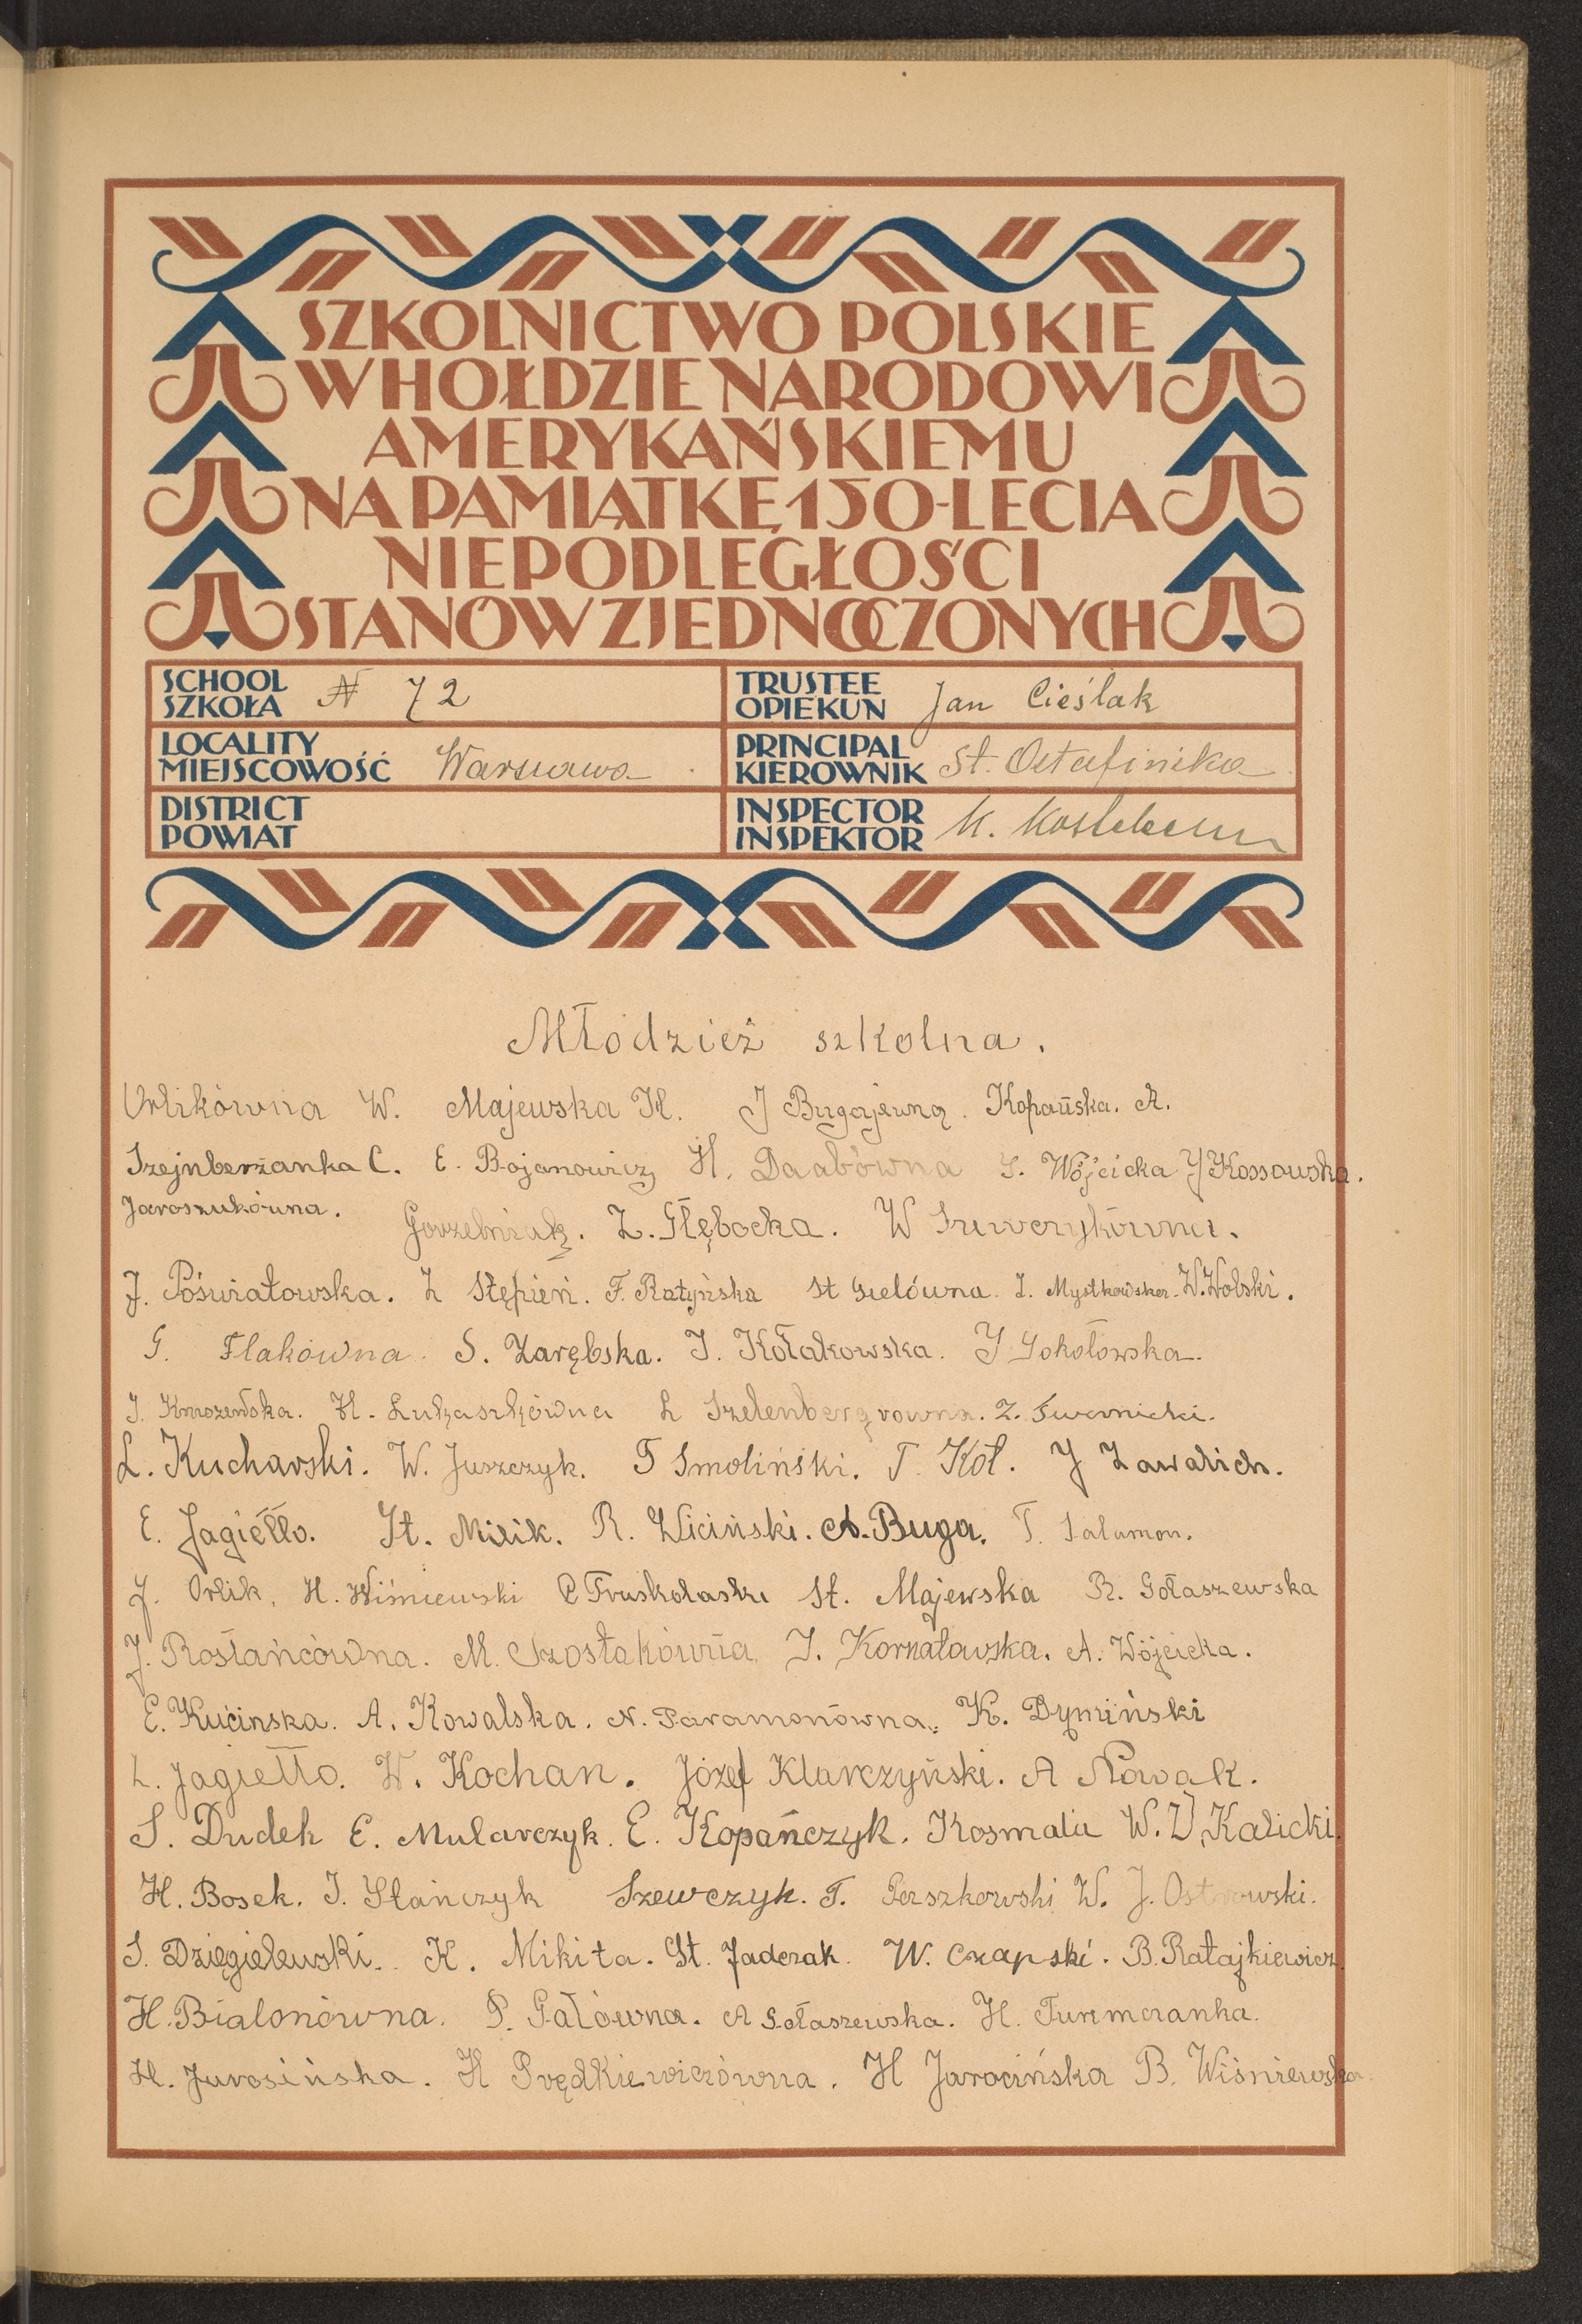 SZKOLNICTWO POLSKIE
W HOŁDZIE NARODOWI
AMERYKAŃSKIEMU
NA PAMIĄTKĘ 150-LECIA
NIEPODLEGŁOŚCI
STANÓW ZJEDNOCZONYCH
SCHOOL
SZKOŁA
N 72
TRUSTEE
OPIEKUN
Jan Cieślak
LOCALITY
MIEJSCOWOŚĆ
Warszawa
PRINCIPAL
KIEROWNIK
St. Ostafińska
DISTRICT
POWIAT
INSPECTOR
INSPEKTOR
K.
Młodzież szkolna.
Orlikówna W. Majewska H. J Bugajewna. Kopańska. A.
Szejnberżanka C. E. Bojanowicz H. Daabówna S. Wójcicka J Kossowska.
Jaroszukówna. Gorzelniak. Z. Głębocka. W Szewczykówna.
J. Poświatowska. Z Stępień. F. Ratyńska St Gielówna. I. Mystkowska. W. Wolski.
G. Flakówna. S. Zarębska. J. Kołakowska. J Sokołowska.
J. H. Łukaszkówna L Szelenbergrowna. Z. Twarnicki.
L. Kucharski. W. Juszczyk. T Smoliński. T. Kot. J Zawalich.
E. Jagiełło. St. Milik. R. Wiciński. A. Buga. T. Salamon.
J. Orlik. H. Wiśniewski C Truskolaski St. Majewska R. Gołaszewska
J. Rosłańcówna. M. Szostakówna. J. Kornatowska. A. Wójcicka.
E. Kucińska. A. Kowalska. N. Paramonówna. K. Dymiński
L. Jagiełło. W. Kochan. Józef Klarczyński. A Nowak.
S. Dudek E. Mularczyk. E. Kopańczyk. Kosmala W. W. Kalicki.
H. Bosek. J. Stańczyk Szewczyk. T. Perszkowski W. J. Ostrowski.
S. Dzięgielewski. K. Mikita. St. Jadczak. W. Czapski. B. Ratajkiewicz.
H. Bialonówna. P. Gałówna. A Gołaszewska. H. Turemczanka.
H. Jurosińska. H Prędkiewiczówna. H Jarocińska B. Wiśniewska.